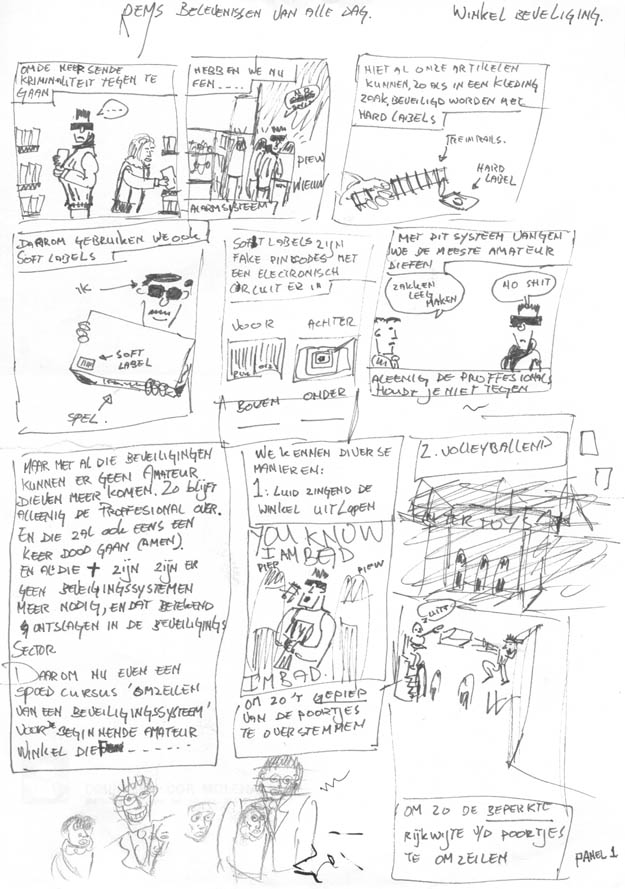 REMS BELEVENISSEN VAN ALLE DAG.
WINKEL BEVEILIGING.
OM DE HEERSENDE
KRIMINALITEIT TEGEN TE
GAAN
HEBBEN WE NU
EEN ....
PIEW
WIEUW
ALARMSYSTEEM
NIET AL ONZE ARTIKELEN
KUNNEN, ZO ALS IN EEN KLEDING
ZAAK, BEVEILIGD WORDEN MET
HARD LABELS
TREINRAILS.
HARD
LABEL
DAAROM GEBRUIKEN WE OOK
SOFT LABELS
IK
SOFT
LABEL
SPEL.
SOFT LABELS ZIJN
FAKE PINCODES MET
EEN ELECTRONISCH
CIRCUIT ER IN
VOOR
ACHTER
BOVEN
ONDER
MET DIT SYSTEEM VANGEN
WE DE MEESTE AMATEUR
DIEFEN
ZAKKEN
LEEG
MAKEN
NO SHIT
ALEENIG DE PROFFESIONALS
HOUDT JE NIET TEGEN
MAAR MET AL DIE BEVEILIGINGEN
KUNNEN ER GEEN AMATEUR
DIEVEN MEER KOMEN. ZO BLIJFT
ALLEENIG DE PROFFESIONAL OVER.
EN DIE ZAL OOK EENS EEN
KEER DOOD GAAN (AMEN).
EN AL DIE + ZIJN ZIJN ER
GEEN BEVEIGINGSSYSTEMEN
MEER NODIG, EN DAT BETEKEND
ONTSLAGEN IN DE BEVEILIGINGS
SECTOR
DAAROM NU EVEN EEN
SPOED CURSUS 'OMZEILEN
VAN EEN BEVEILIGINGSSYSTEEM'
VOOR DE BEGINNENDE AMATEUR
WINKEL DIE
WE KENNEN DIVERSE
MANIEREN:
1: LUID ZINGEND DE
WINKEL UITLOPEN
YOU KNOW
I AM BAD
PIEP
PIEW
I'M BAD.
OM ZO 'T GEPIEP
VAN DE POORTJES
TE OVERSTEMMEN
2. VOLLEYBALLEND
INTERTOYS
OM ZO DE BEPERKTE
RIJKWIJTE V/D POORTJES
TE OMZEILEN
PANEL 1